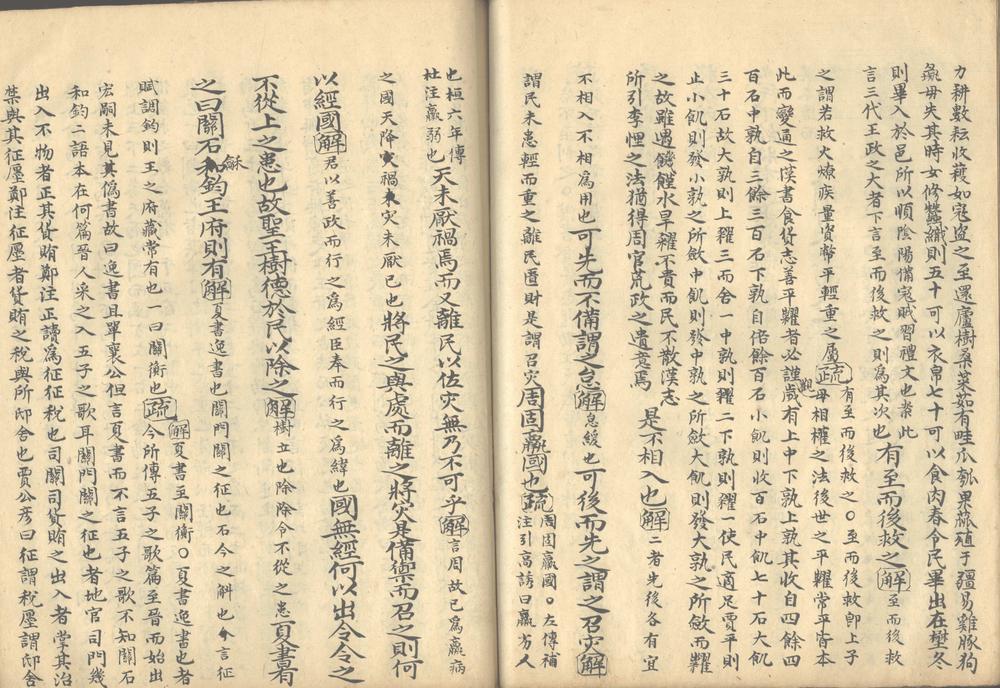 力耕數耘收穫如寇盜之至還廬樹桑菜茹有畦瓜瓠果蓏殖于疆易雞豚狗
彘毋失其時女修蠶織則五十可以衣帛七十可以食肉春令民畢出在壄冬
則畢入於邑所以順陰陽備寇賊習禮文也
言三代王政之大者下言至而後救之則為其次也有至而後救之解至而後救
之謂若救火療疾量資幣平輕重之屬疏有至而後救之〇至而後救卽上子
母相權之法後世之平糶常平皆本
此而變通之漢書食貨志善平糶者必謹觀歲有上中下孰上孰其收自四餘四
百石中孰自三餘三百石下孰自倍餘百石小飢則收百石中飢七十石大飢
三十石故大孰則上糴三而舍一中孰則糴二下孰則糴一使民適足賈平則
止小飢則發小孰之所斂中飢則發中孰之所斂大飢則發大孰之所斂而糶
之故雖遇饑饉水旱糶不貴而民不散漢志
所引李悝之法猶得周官荒政之遺意焉是不相入也解二者先後各有宜
不相入不相為用也可先而不備謂之怠解怠緩也可後而先之謂之召灾解
謂民未患輕而重之離民匱財是謂召灾周固羸國也疏周固羸國〇左傳補
注引高誘曰羸方人
也桓六年傳
杜注羸弱也天未厭禍焉而又離民以佐灾無乃不可乎解言周故已為羸病
之國天降灾禍灾未厭已也將民之與處而離之將灾是備禦而召之則何
以經國解君以善政而行之為經臣奉而行之為緯也國無經何以出令令之
不從上之患也故聖王樹德於民以除之解樹立也除除令不從之患夏書有
之曰關石龢鈞王府則有解夏書逸書也關門關之征也石今之斛也言征
賦調鈞則王之府藏常有也一曰關衡也疏解夏書至關衡〇夏書逸書也者
今所傳五子之歌篇至晉而始出
宏嗣未見其偽書故曰逸書且單襄公但言夏書而不言五子之歌不知關石
和鈞二語本在何篇晉人采之入五子之歌耳關門關之征也者地官司門幾
出入不物者正其貨賄鄭注正讀為征征稅也司關司貨賄之出入者掌其治
禁與其征廛鄭注征廛者貨賄之稅與所邸舍也賈公彥曰征謂稅廛謂邸舍